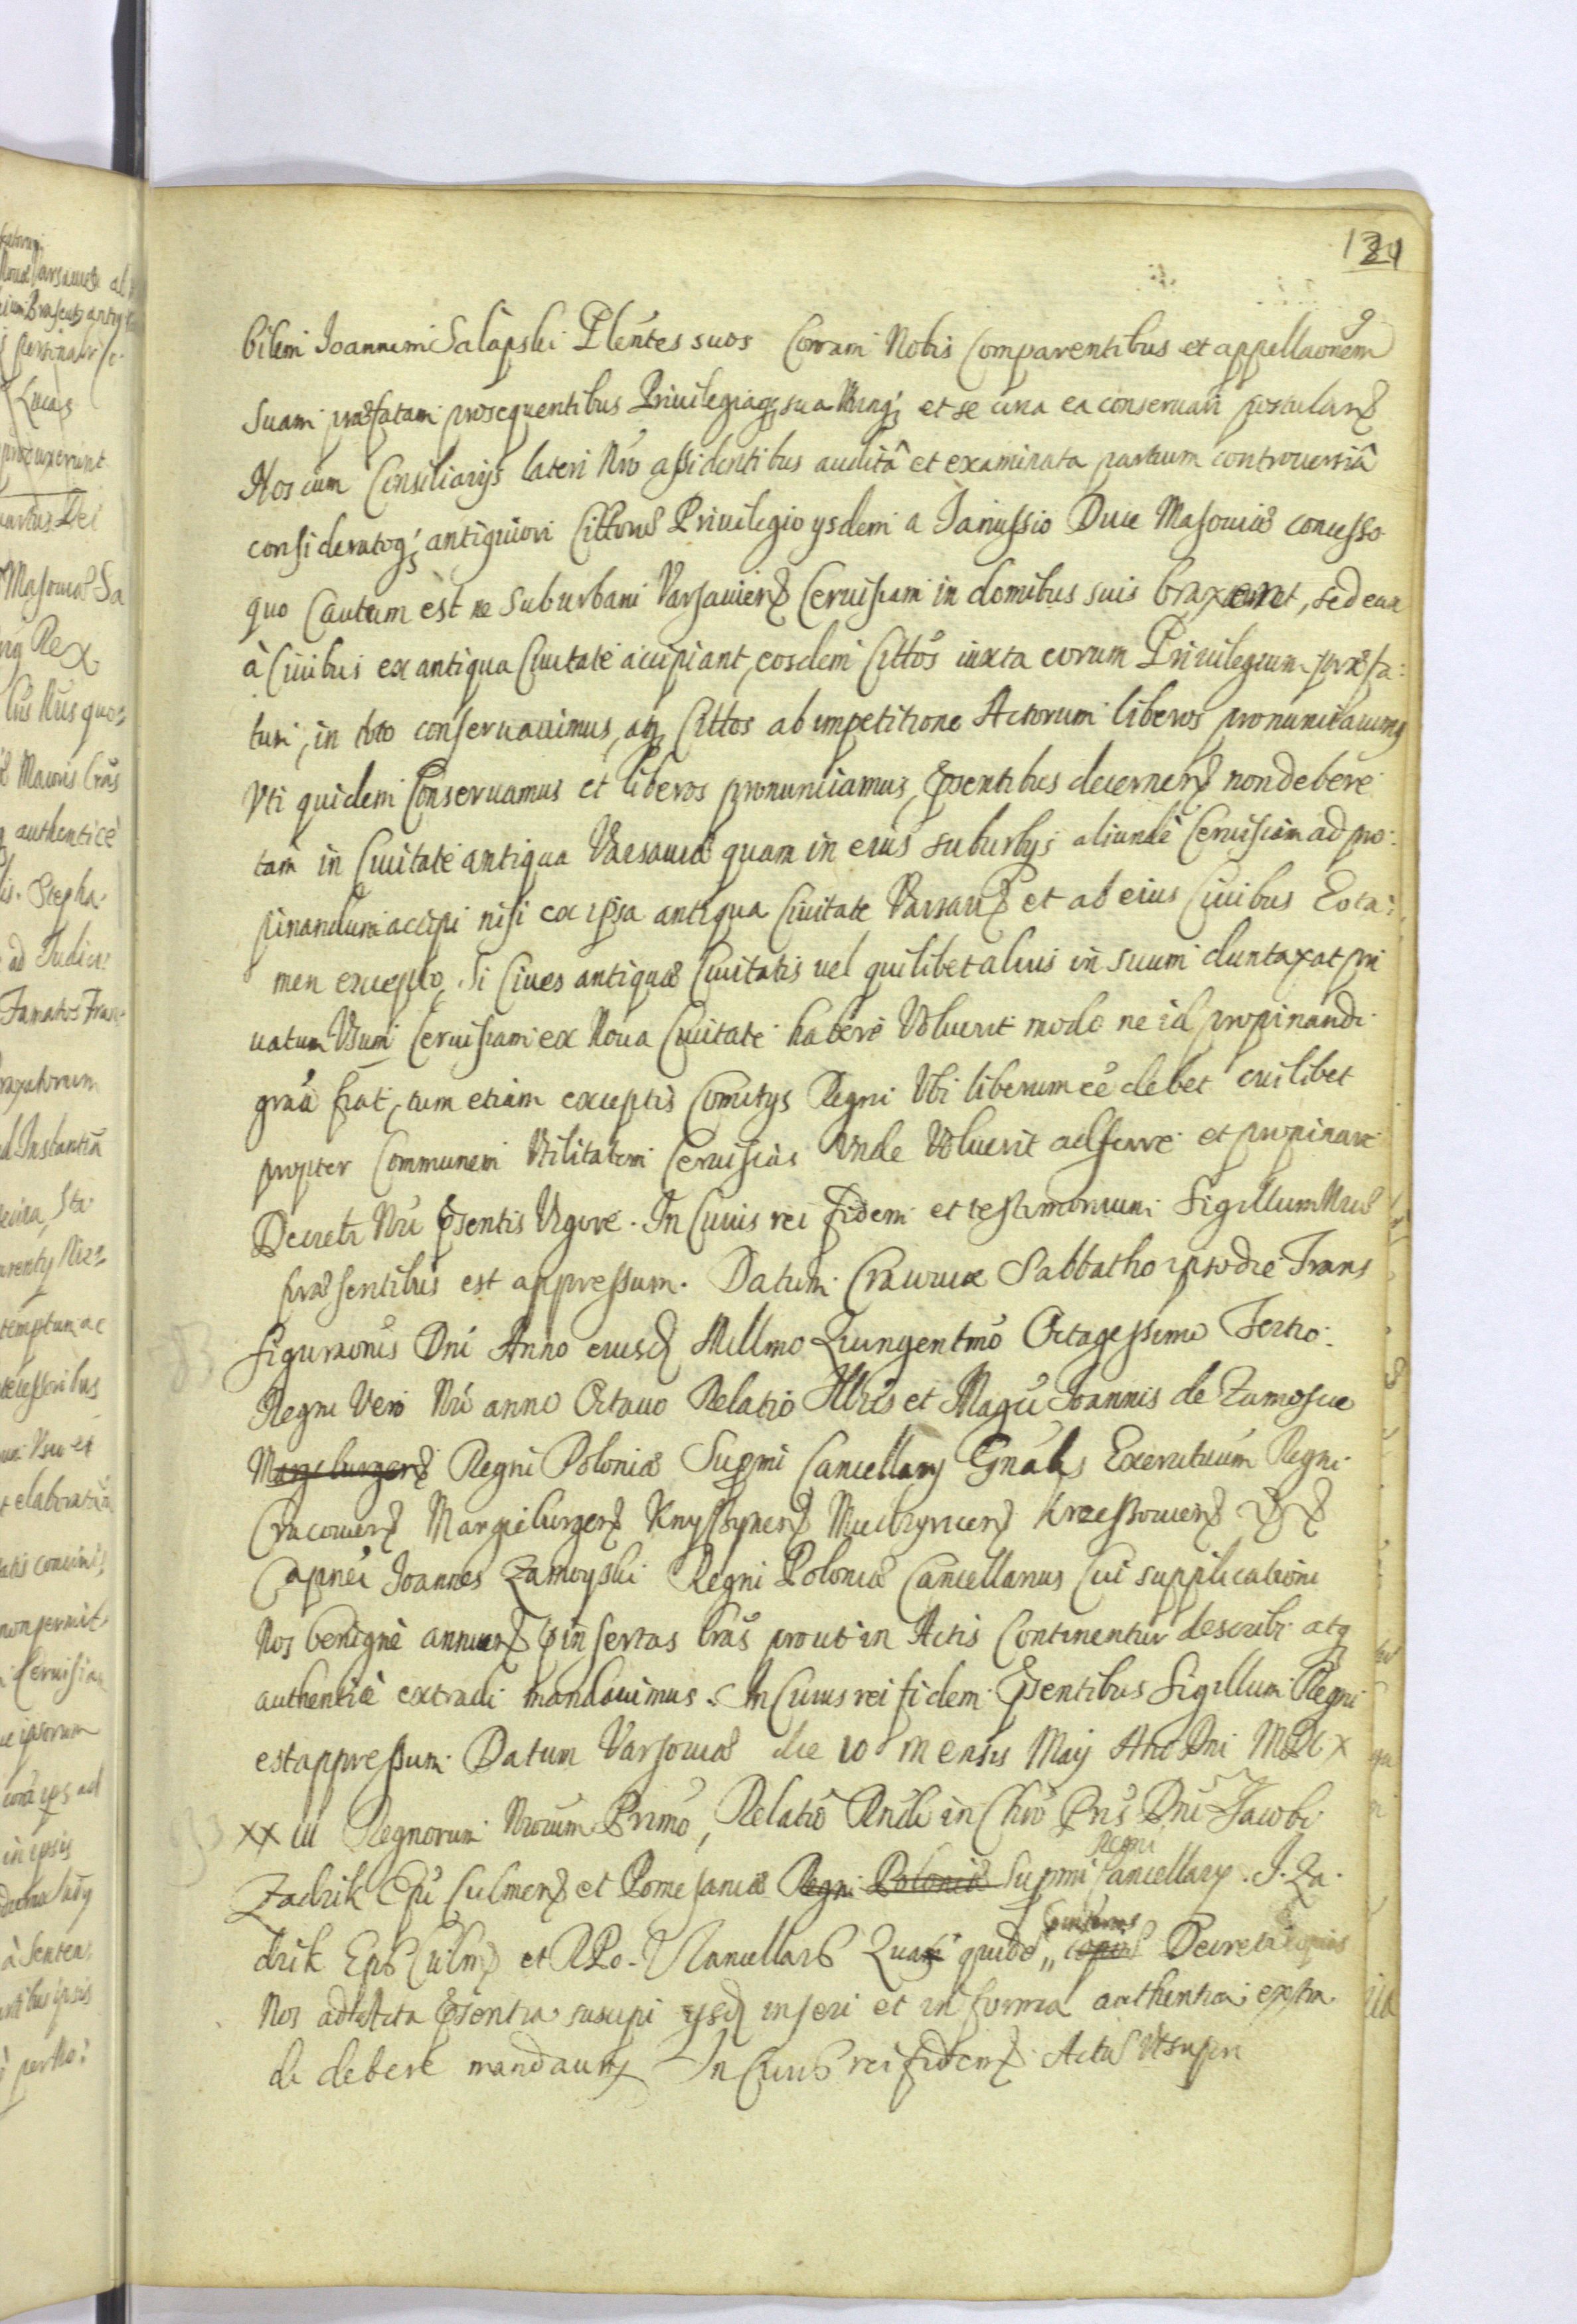 121
9
bilem Joannem Salapski Plentes suos Coram Nobis Comparentibus et appellaonem
suam præfatam prosequentibus Priuilegiaq sua et se circa ea conseruari postulan
Nos cum Consiliarijs lateri Nro assidentibus auditâ et examinata partium controuersiâ
consideratoq antiquiori Cittorum Priuilegio ysdem a Janussio Duce Masouiæ concesso
quo Cautum est ne Suburbani Varsauien Ceruisiam in domibus suis braxent, sed eam
à Ciuibus ex antiqua Ciuitate accipiant, eosdem Cittos iuxta eorum Priuilegium præfa:
tum, in toto conseruauimus, atq Cittos ab impetitione Actorum liberos pronunciauimus
Vti quidem Conseruamus et liberos pronunciamus, Psentibus decernen non debere
tam in Ciuitate antiqua Varsauia quam in eius suburbijs aliunde Ceruisiam ad pro:
pinandum accipi nisi ex ipsa antiqua Ciuitate Varsaui et ab eius Ciuibus Eo ta:
men excepto, Si Ciues antiquæ Ciuitatis uel quilibet alius in suum duntaxat pri
uatum Vsum Ceruisiam ex Noua Ciuitate habere Voluerit modo ne id propinandi
graa fiat, tum etiam exceptis Comitys Regni Vbi liberum ee debet cuilibet
propter Communem Vtilitatem Ceruisias Vnde Voluerit adferre et propinare
Decreti Nri Psentis Vigore. In Cuius rei fidem et testimonium Sigillum Nrum
præsentibus est appressum. Datum Cracouiæ Sabbatho ipso die Trans
figuraonis Dni Anno eiusd Millmo Quingentmo Octagessimo Tertio
Regni Vero Nri anno Octauo Relatio Illris et Magci Joannis de Zamoscie
Margeburgen Regni Poloniæ Supmi Cancellarij Gnalis Exercituum Regni
Cracouien Margieburgen Knyssynen Miedzyrecen Krzessouien
Capnei Joannes Zamoyski Regni Poloniæ Cancellarius Cui supplicationi
Nos benigne annuen pinsertas lras prout in Actis Continentur describi atq
authentice extradi mandauimus. In Cuius rei fidem Psentibus Sigillum Regni
est appressum. Datum Varsouiæ die 10 mensis Maij Ano Dni MDC x
xx III Regnorum Nrorum Primo, Relatio Rndi in Chro Pris Dni Jacobi
Zadzik Epi Culmen et Pomesaniæ Regni Poloniæ Supmi Regni Cancellary. J. Za:
dzik Eps Culmen et R Po. Cancellars Quas quide copias Decreti
Nos ad Acta Psentia suscipi ysd inseri et in forma authentica extra
di debere mandauim In Cuius rei fidem Actu Vt supra